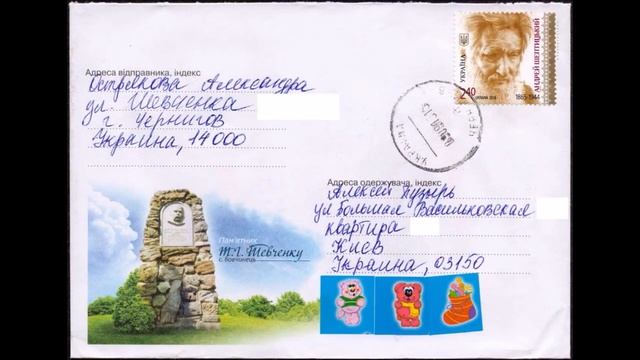 Адреса відправника, індекс
Острякова Александра
ул. Шевченка
г. Чернигов
Украина, 14000
УКРАЇНА
2.40
АНДРЕЙ ШЕПТИЦЬКИЙ
1865-1944
УКРАЇНА
Адреса одержувача, індекс
Алексей Пузырь
ул Большая Васильковская
квартира
Киев
Украина, 03150
Пам'ятник
Т.Г. Шевченку
с. Вовчинець